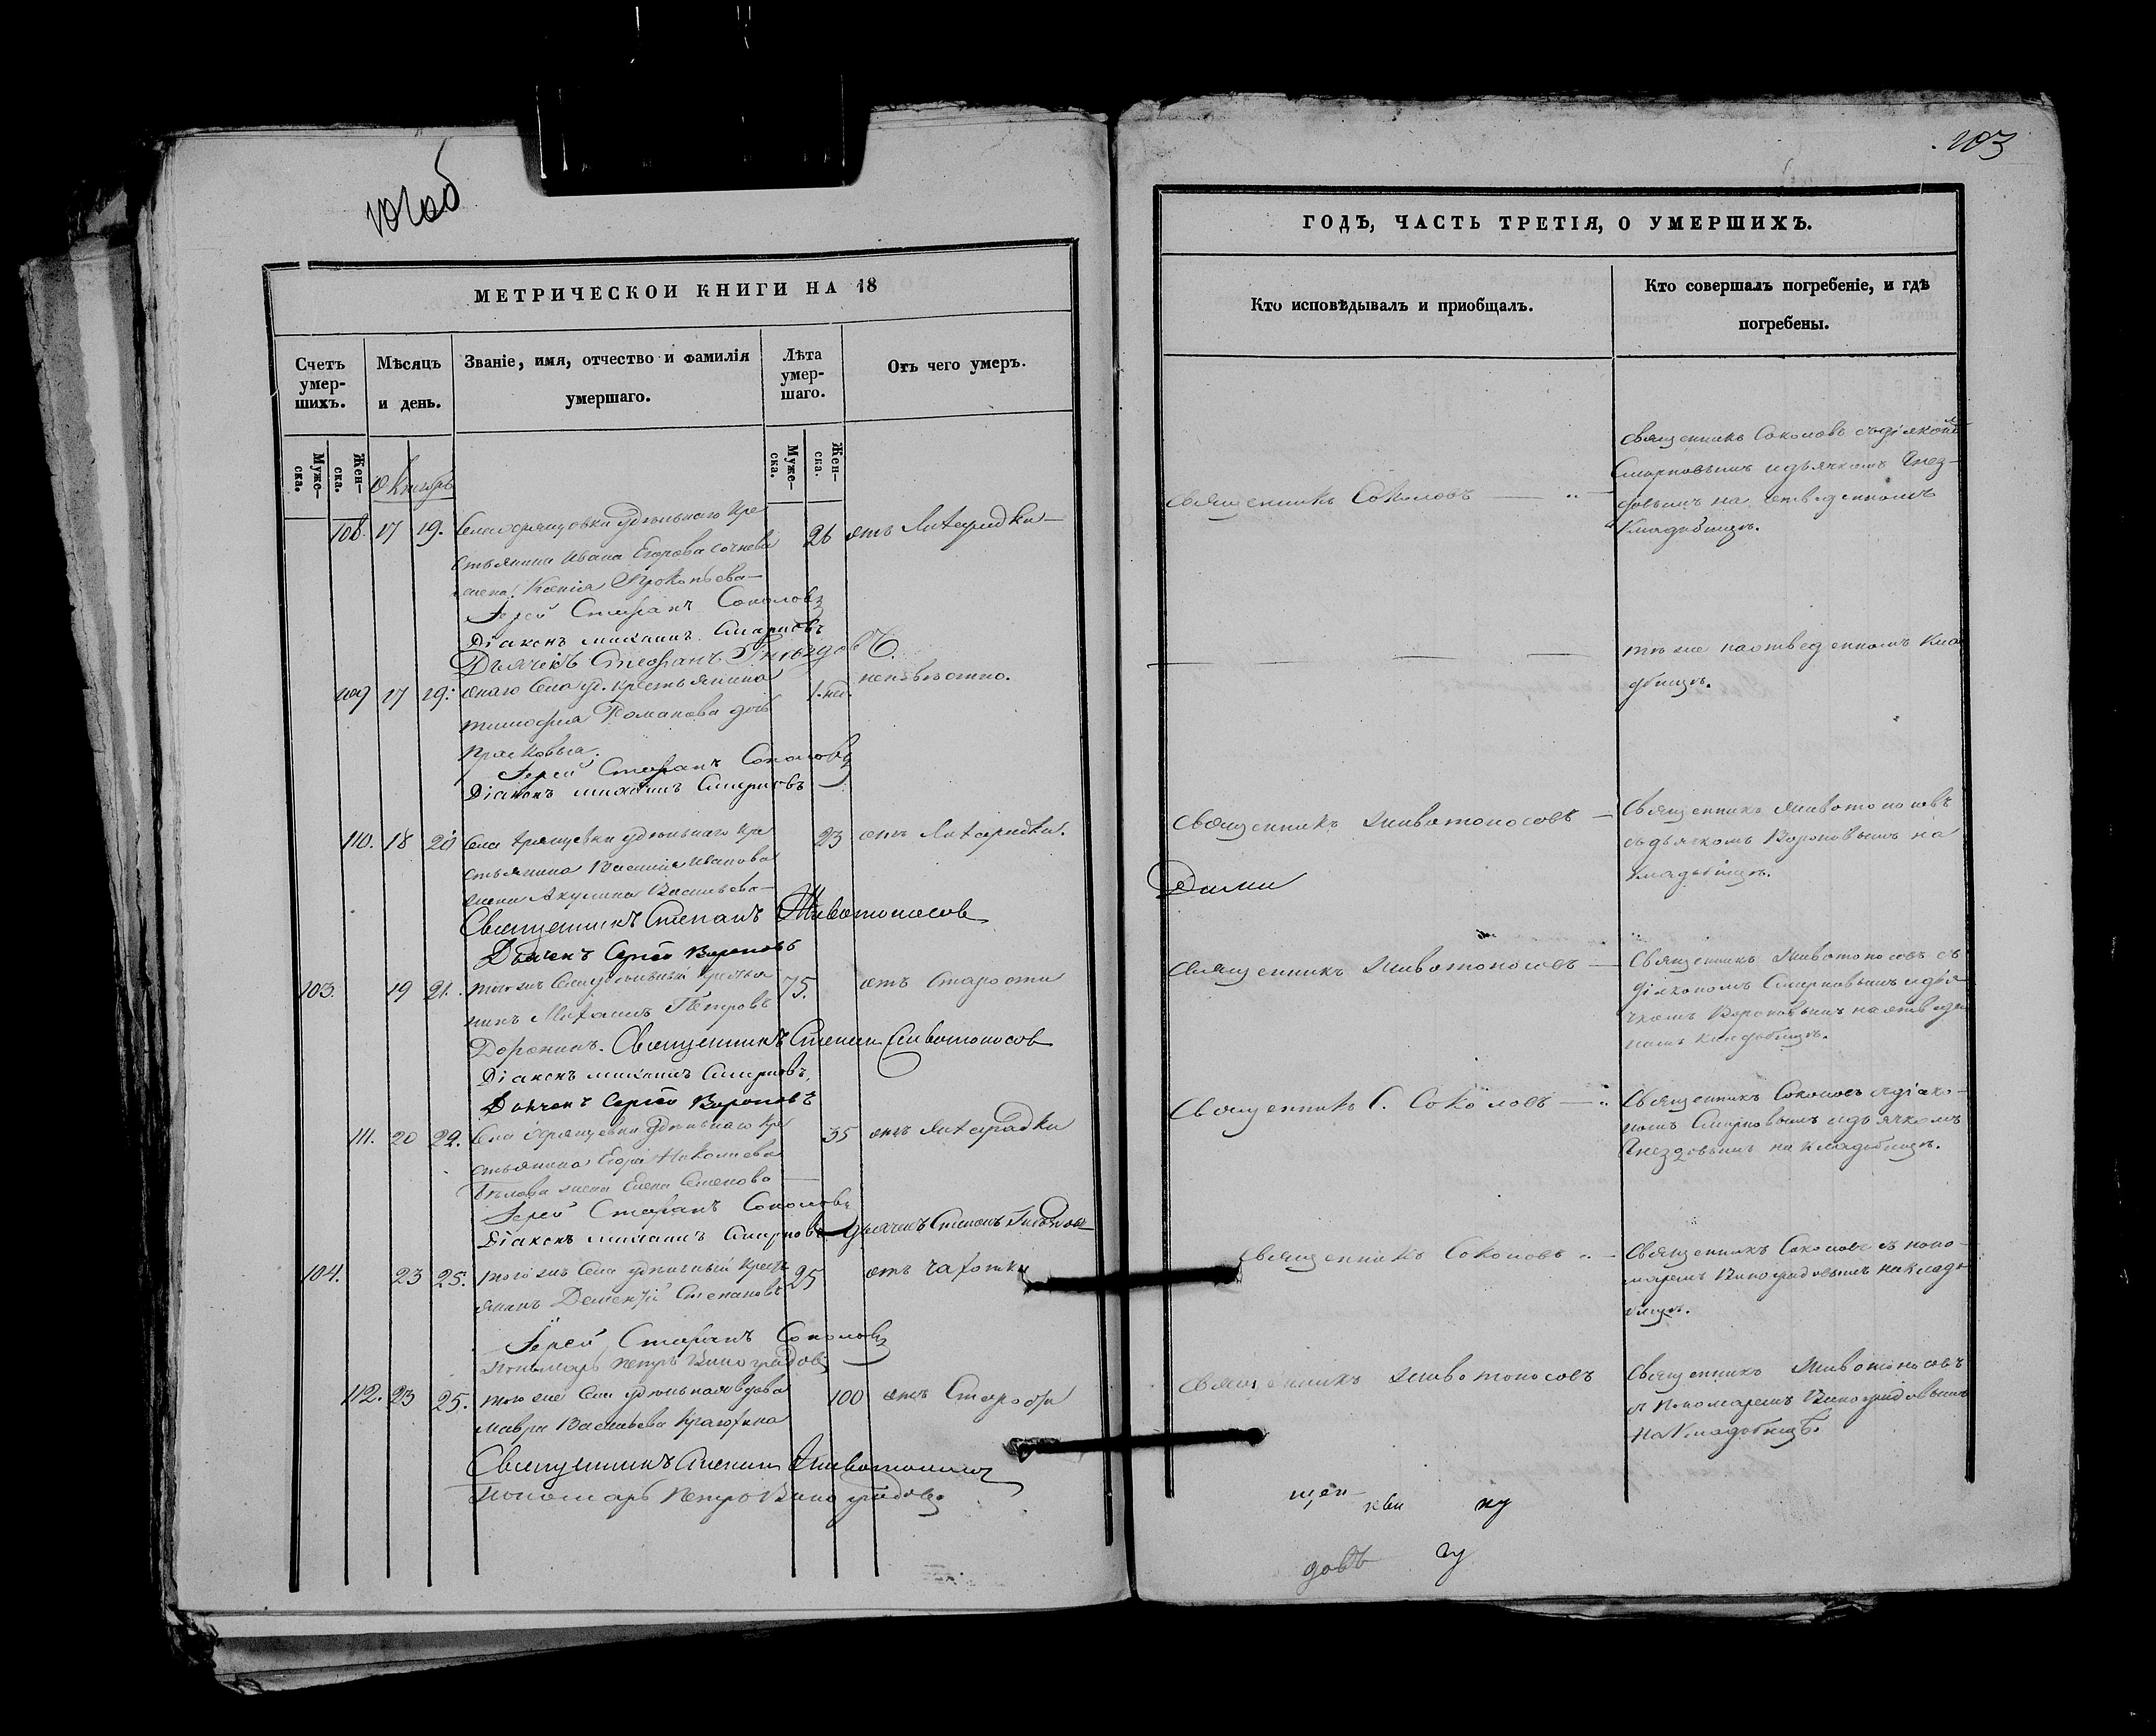 102об
МЕТРИЧЕСКОЙ КНИГИ НА 18
Счетъ умер-шихъ.
Мѣсяцъ и день.
Званіе, имя, отчество и фамилія умершаго.
Лѣта умер-шаго.
Отъ чего умеръ.
Муже-ска.
Жен-ска.
Октябрь
Муже-ска.
Жен-ска.
108. 17 19. Села Хрящовки удѣльнаго кре 26 отъ Лихорадки
стьянина Ивана Егорова
жена Ксенія Прокопьева
Іерей Стефанъ Соколовъ
Діаконъ Михаилъ Смирновъ
Дьячекъ Стефанъ Гнѣздовъ
109 17 19. онаго Села уд. крестьянина 1. не. неизвѣстно.
Тимофея Романова дочь
Прасковья.
Іерей Стефанъ Соколовъ
Діаконъ Михаилъ Смирновъ
110. 18 20 Села Хрящевки удѣльнаго кре 23 отъ Лихорадки.
стьянина Василія Иванова
жена Акулина Васильева
Священникъ Степанъ Животоносов
Дьячекъ Сергѣй Вороновъ
103. 19 21. того же Села удѣльный крестья 75. отъ старости
нинъ Михаилъ Петровъ
Доронинъ. Священникъ Степан Животоносов
Діаконъ Михаилъ Смирновъ,
Дьячекъ Сергѣй Вороновъ
111. 20 22. Села Хрящевки удѣльнаго кре 35 отъ лихорадки
стьянина Егора Николаева
Бѣлова жена Елена Семенова
Іерей Стефанъ Соколовъ
Діаконъ Михаилъ Смирновъ Дьячекъ Степанъ Гнѣздов
104. 23 25. того же Села удѣльный кресть 25 отъ чахотки
янинъ Дементій Степановъ
Іерей Стефанъ Соколовъ
Пономарь Петръ Виноградовъ
112. 23 25. того же Села удѣльная вдова 100 отъ Старости
Мавра Васильева
Священникъ Степан Животоносов
Пономарь Петръ Виноградовъ.
103
ГОДЪ, ЧАСТЬ ТРЕТІЯ, О УМЕРШИХЪ.
Кто исповѣдывалъ и пріобщалъ.
Кто совершалъ погребеніе, и гдѣ погребены.
Священникъ Соколовъ
Священникъ Соколовъ съ діякономъ
Смирновымъ и дьячкомъ Гнез-
довымъ на отведенномъ
Кладбищѣ.
тѣ же на отведенномъ кла
дбищѣ.
Священникъ Животоносовъ
Священникъ Животоносовъ
съ дьячкомъ Вороновымъ на
Кладбищѣ.
Священникъ Животоносовъ
Священникъ Животоносовъ съ
діякономъ Смирновымъ и дья
чкомъ Вороновымъ на отведен
номъ кладбищѣ.
Священникъ С. Соколовъ
Священникъ Соколовъ съ діако-
номъ Смирновымъ и дьячкомъ
Гнездовымъ на кладбищѣ.
Священникъ Соколовъ
Священникъ Соколовъ съ поно-
маремъ Виноградовымъ на клад
бищѣ.
Священникъ Животоносовъ
Священникъ Животоносовъ
съ Пономаремъ Виноградовымъ
на Кладбищѣ.
щен
кви
ну
довъ
гу